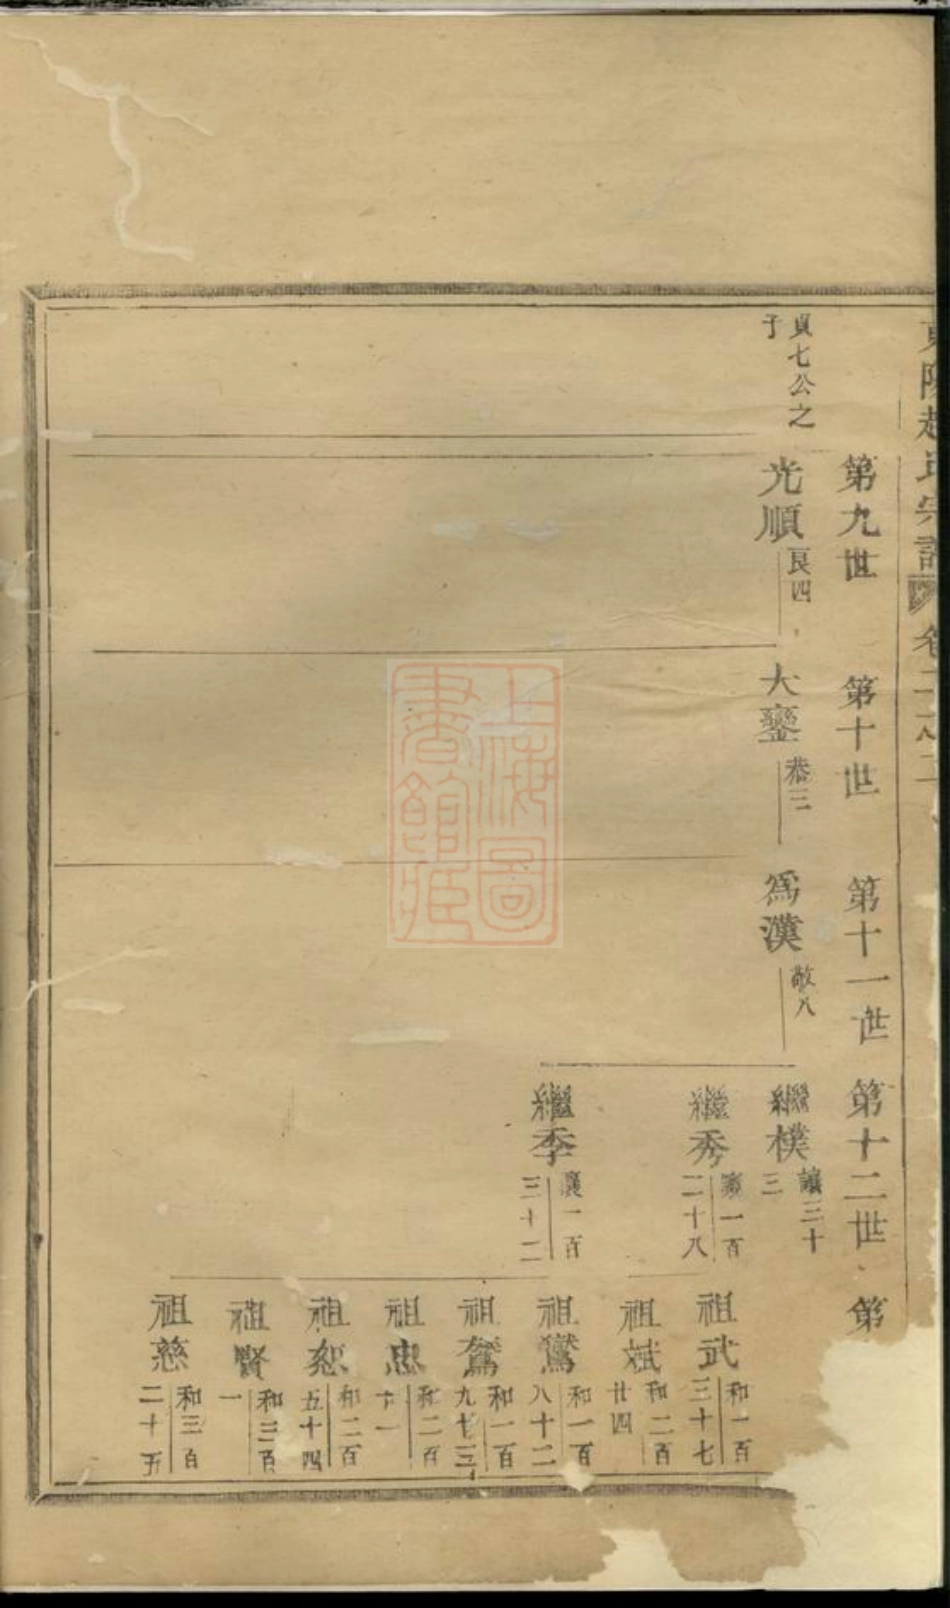 東陽趙氏宗譜
卷二之二
第九世
第十世
第十一世
第十二世
第
貞七公之
子
光順
良四
大鑾
恭三
為漢
敬八
繼樸
讓三十
三
繼秀
讓一百
二十八
繼季
讓一百
三十二
祖武
和一百
三十七
祖斌
和二百
廿四
祖鸞
和一百
八十二
祖鴛
和一百
九十三
祖忠
和二百
十一
祖恕
和二百
五十四
祖賢
和三百
一
祖慈
和三百
二十五
上海圖
書館藏